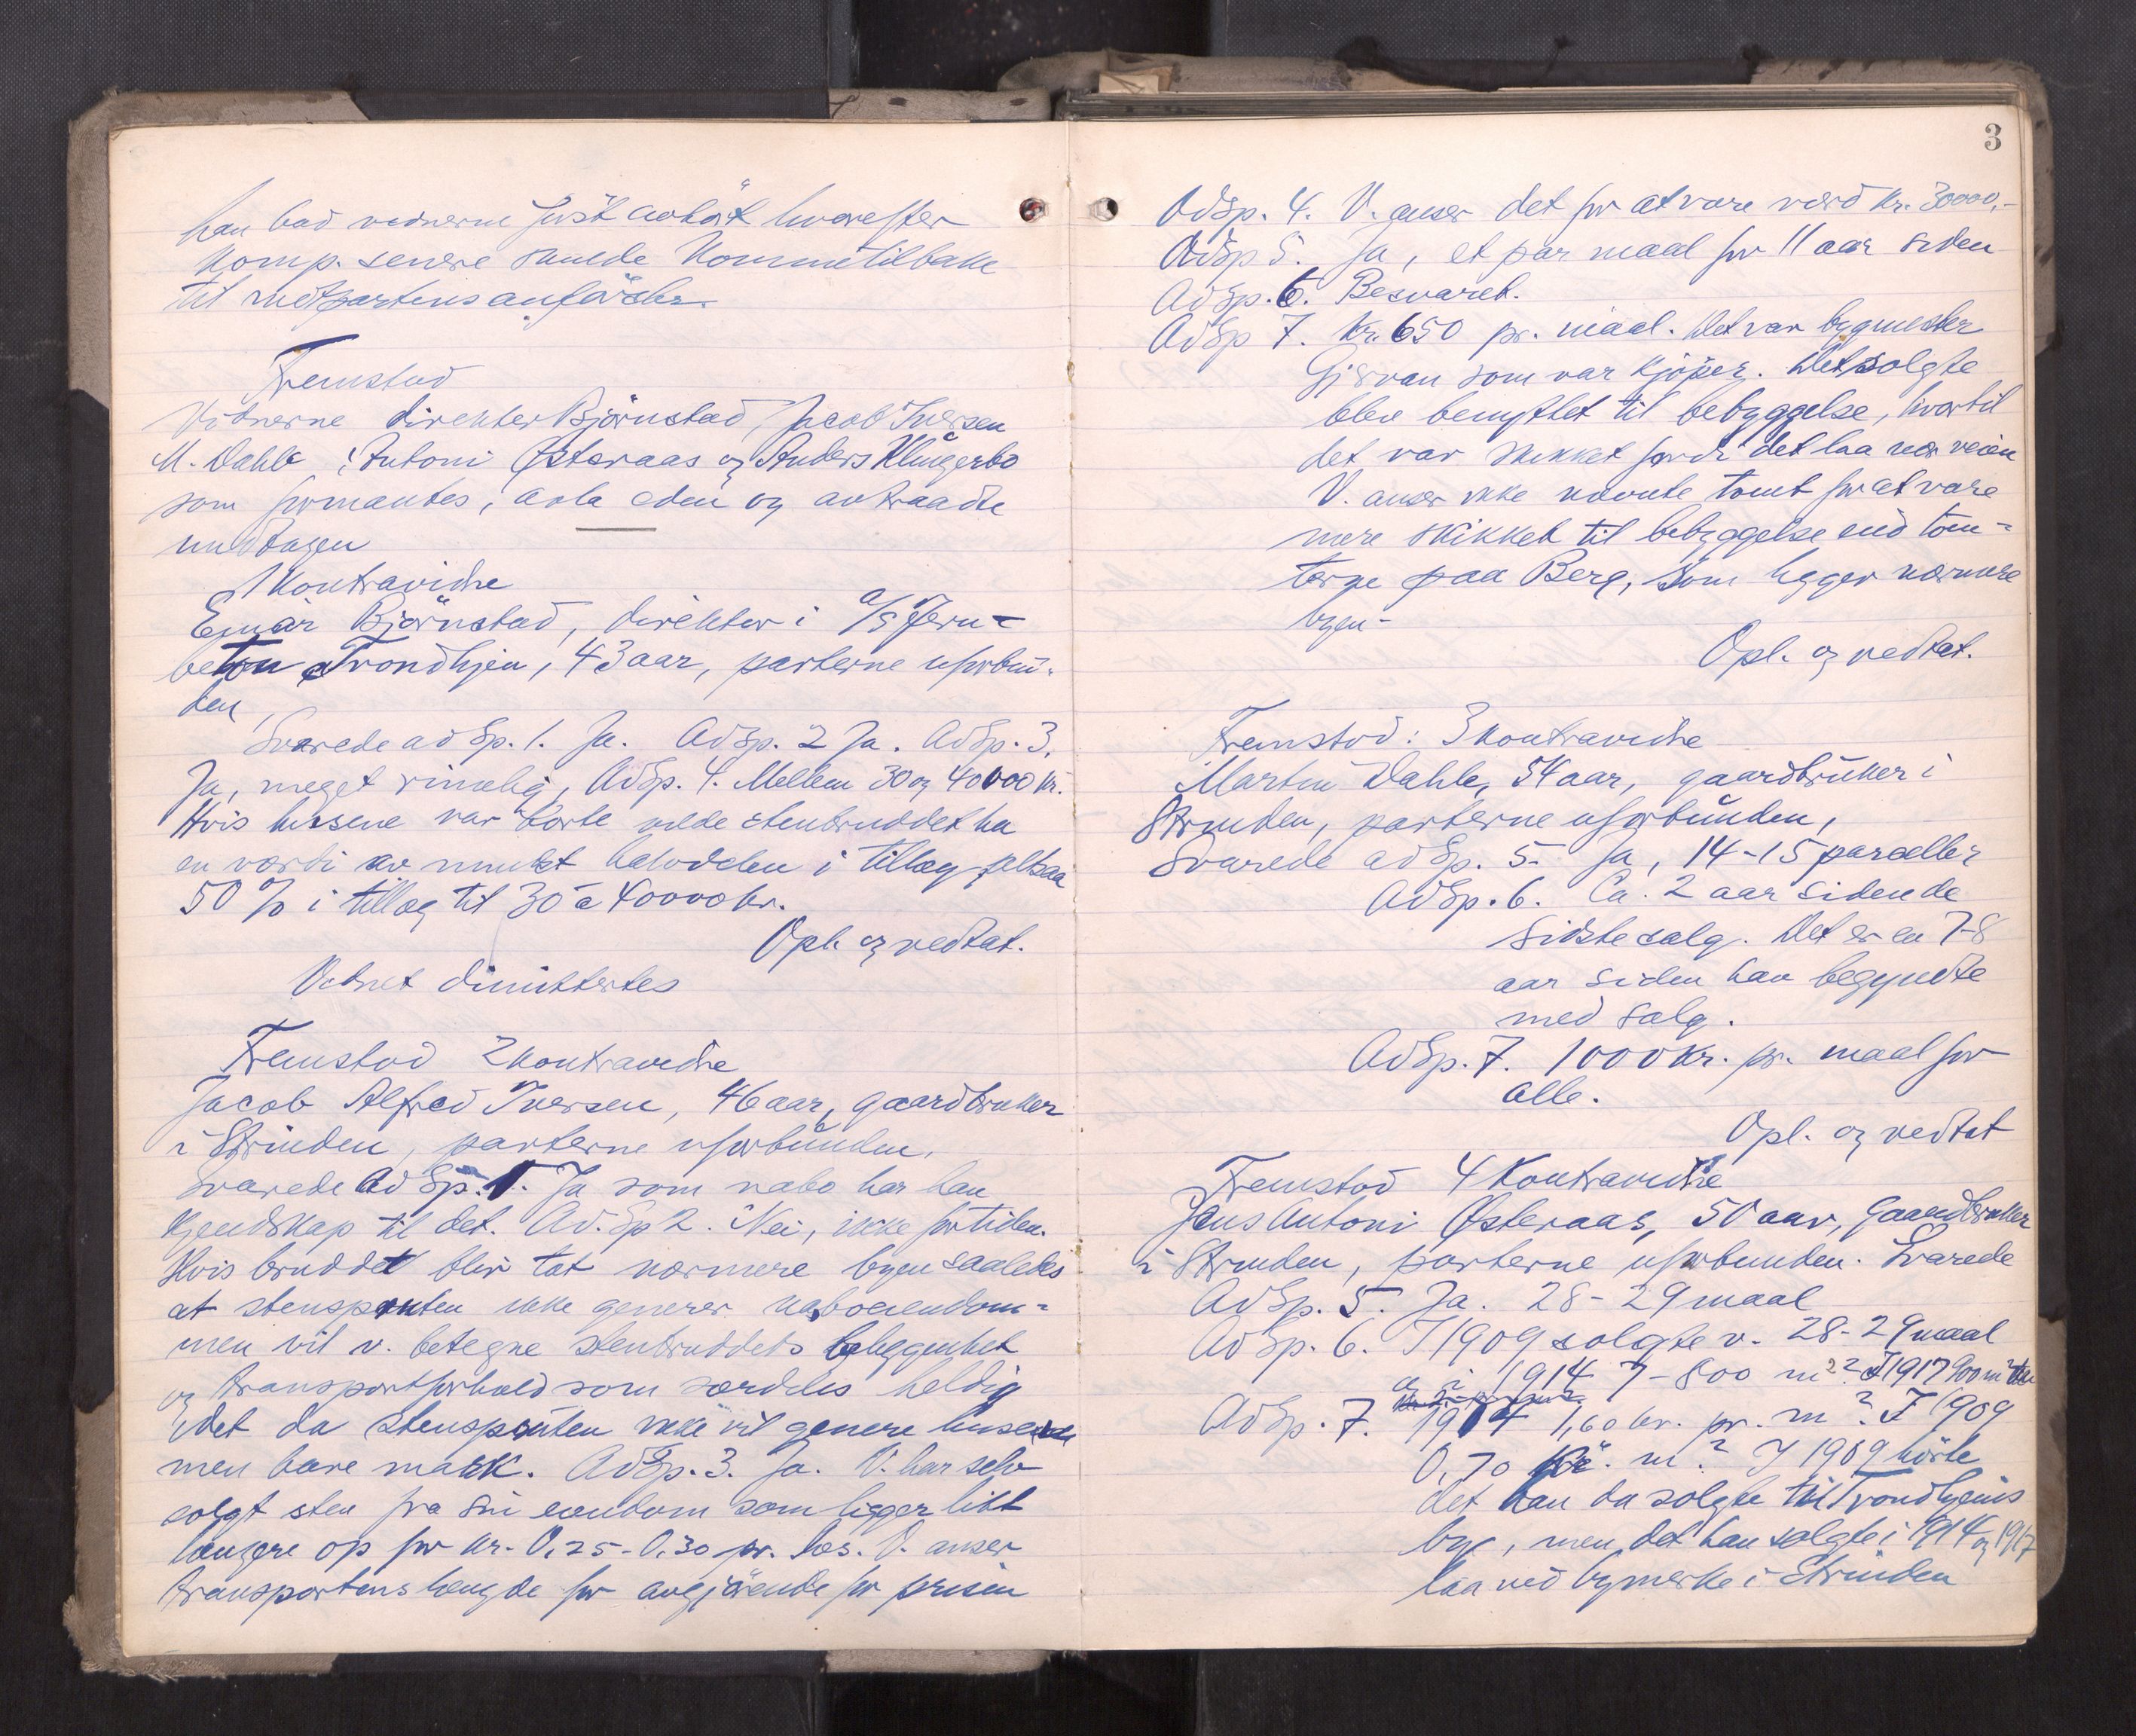 han bad vidnerne först avhört hvorefter
Komp. senere skulde komme tilbake
til motpartens anförsler.
Fremstod
Vidnerne direktør Björnstad, Jacob Iversen
M. Dahle, Antoni Østeraas og Anders Klingerbo
som formantes, avla eden og avtraadte
undtagen
1 Kontravidne
Einar Björnstad, direktør i A/S Jern-
beton Trondhjem, 43 aar, parterne uforbun-
den,
Svarede ad Sp. 1. Ja. Ad Sp. 2 Ja. Ad Sp. 3.
Ja, meget rimelig, Ad Sp. 4. Mellem 30 og 40000 kr.
Hvis husene var borte vilde stenbruddet ha
en værdi av mindst halvdelen i tillæg altsaa
50 % i tillæg til 30 à 40000 kr.
Opl. og vedtat.
Vidnet dimittertes
Fremstod 2 Kontravidne
Jacob Alfred Iversen, 46 aar, gaardbruker
i Strinden, parterne uforbunden.
Svarede Ad Sp. 1. Ja som nabo har han
kjendskap til det. Ad. Sp 2. Nei, ikke for tiden.
Hvis bruddet blir tat nærmere byen saaledes
at stenspruten ikke generer naboeiendom-
men vil v. betegne stenbruddets beliggenhet
og transportforhold som særdeles heldig
idet da stenspruten ikke vil genere husene
men bare mark. Ad Sp. 3. Ja. V. har selv
solgt sten fra sin eiendom som ligger litt
længere op for kr. 0,25 - 0,30 pr. læs. V. anser
transportens længde for avgjörende for prisen
3
Ad Sp. 4. V. anser det for at være værd kr. 30000,-
Ad Sp 5. Ja, et par maal for 11 aar siden
Ad Sp. 6. Besvaret.
Ad Sp 7. Kr. 650 pr. maal. Det var bygmester
Gjervan som var kjöper. Det solgte
blev benyttet til bebyggelse, hvortil
det var skikket fordi det laa nær veien
V. anser ikke nævnte tomt for at være
mere skikket til bebyggelse end tom-
terne paa Berg, som ligger nærmere
byen-
Opl. og vedtat.
Fremstod: 3 Kontravidne
Martin Dahle, 54 aar, gaardbruker i
Strinden, parterne uforbunden,
Svarede ad Sp. 5. Ja, 14-15 parceller
Ad Sp. 6. Ca. 2 aar siden de
sidste salg. Det er en 7-8
aar siden han begyndte
med salg.
Ad Sp. 7. 1000 kr. pr. maal for
alle.
Opl. og vedtat
Fremstod 4 Kontravidne
Jens Antoni Østeraas, 50 aar, gaardbruker
i Strinden, parterne uforbunden. Svarede
Ad Sp. 5. Ja. 28-29 maal
Ad Sp. 6. I 1909 solgte v. 28-29 maal
og i 1914 7-800 m². I 1917 900 m²
Ad Sp. 7. 1914 1,60 kr. pr. m². I 1909
0,70 kr. m². I 1909 hörte
det han da solgte til Trondhjems
by, men det han solgte i 1914 og 1917
laa ved bymerke i Strinden